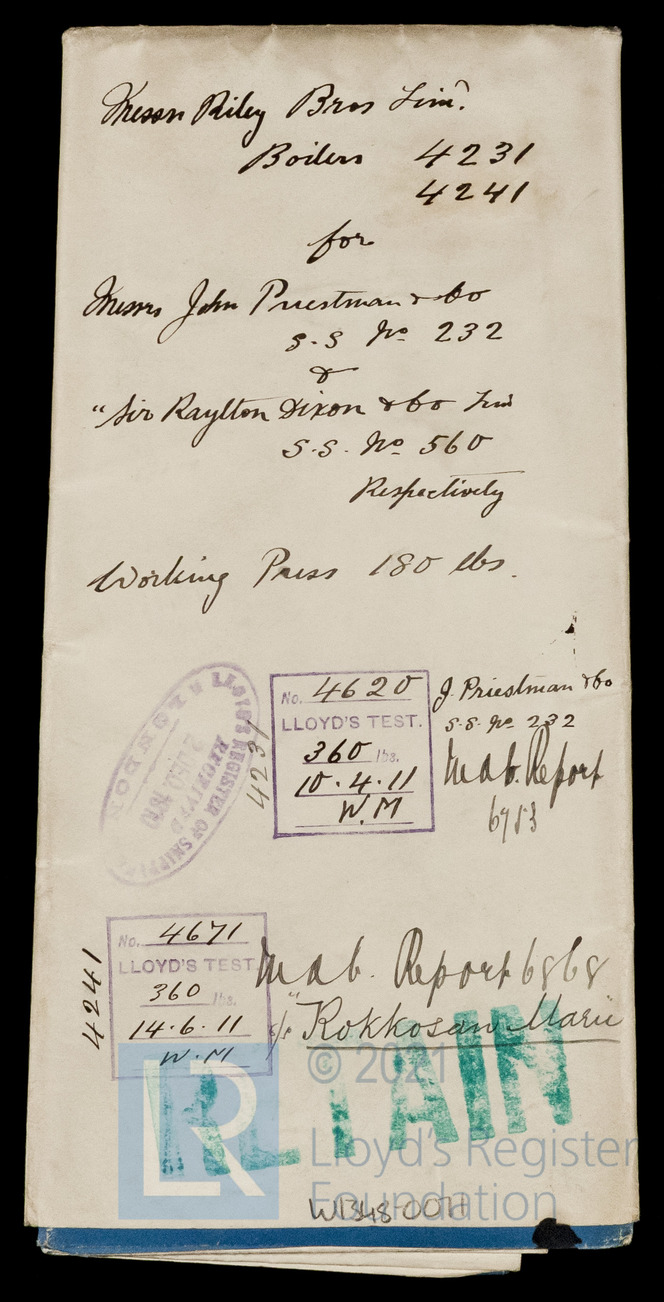 Messrs Riley Bros Limd.
Boilers 4231
4241
for
Messrs John Priestman & Co
S.S No 232
&
"Sir Raylton Dixon & Co Lim
S.S. No 560
Respectively
Working Press 180 lbs.
LLOYD'S REGISTER OF SHIPPING
RECEIVED
LONDON
4231
No. 4620
LLOYD'S TEST.
360 lbs.
10.4.11
W.M
J. Priestman & Co
S.S. No 232
Mab. Report
6953
4241
No. 4671
LLOYD'S TEST
360 lbs.
14.6.11
W.M
Mab. Report 6868
"Rokkosan Maru
RETAIN
LR
© 2021
Lloyd's Register
Foundation